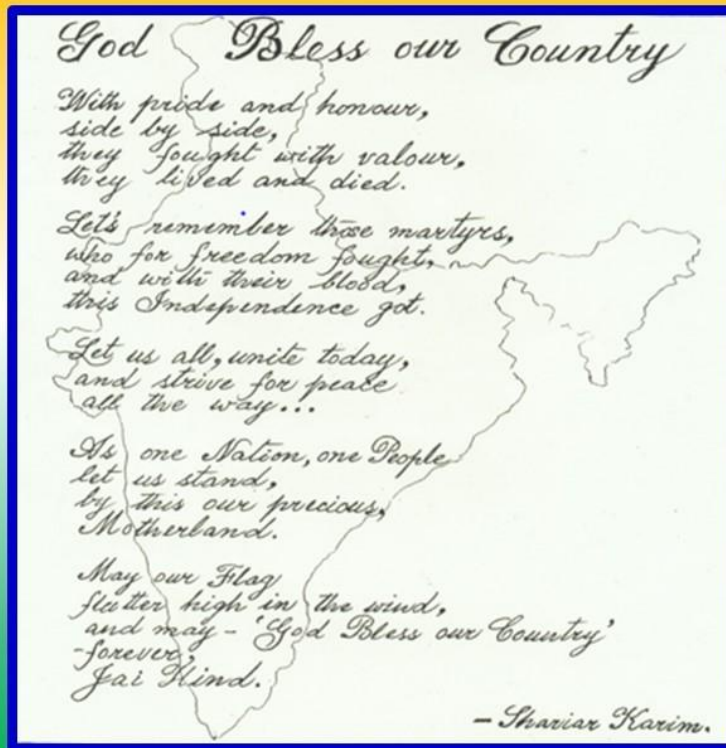 God Bless our Country
With pride and honour,
side by side,
they fought with valour,
they lived and died.
Let's remember those martyrs,
who for freedom fought,
and with their blood,
this Independence got.
Let us all, unite today,
and strive for peace
all the way...
As one Nation, one People
let us stand,
by this our precious,
Motherland.
May our Flag
flutter high in the wind,
and may - 'God Bless our Country'
-forever,
Jai Hind.
- Shariar Karim.